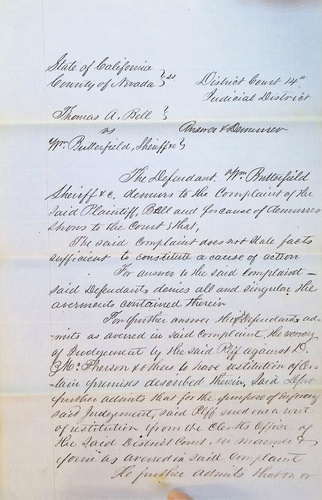 State of California
County of Nevada } ss District Court 14th
Judicial District
Thomas A. Bell }
vs Answer & Demurrer
Wm Butterfield, Sheriff &c }
The Defendant, Wm Butterfield
Sheriff &c. demurs to the Complaint of the
said Plaintiff, Bell and for cause of demurrer
shows to the Court that,
The said Complaint does not state facts
sufficient to constitute a cause of action
For answer to the said Complaint
said Defendants denies all and singular the
averments contained therein
For further answer the Defendants ad-
mits as averred in said Complaint, the
of Judgement by the said Plff against D.
McPherson & others to have restitution of Cer-
tain premises described therein, Said Deft
further admits that for the purpose of
said Judgement, said Plff sued out a writ
of restitution from the Clerks Office of
the said District Court, in manner &
form as averred in said Complaint
He further admits that on or